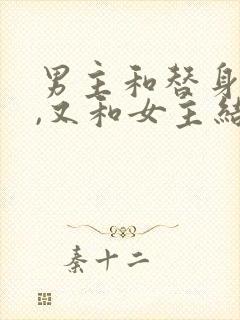 男主和替身
,又和女主结
秦十二